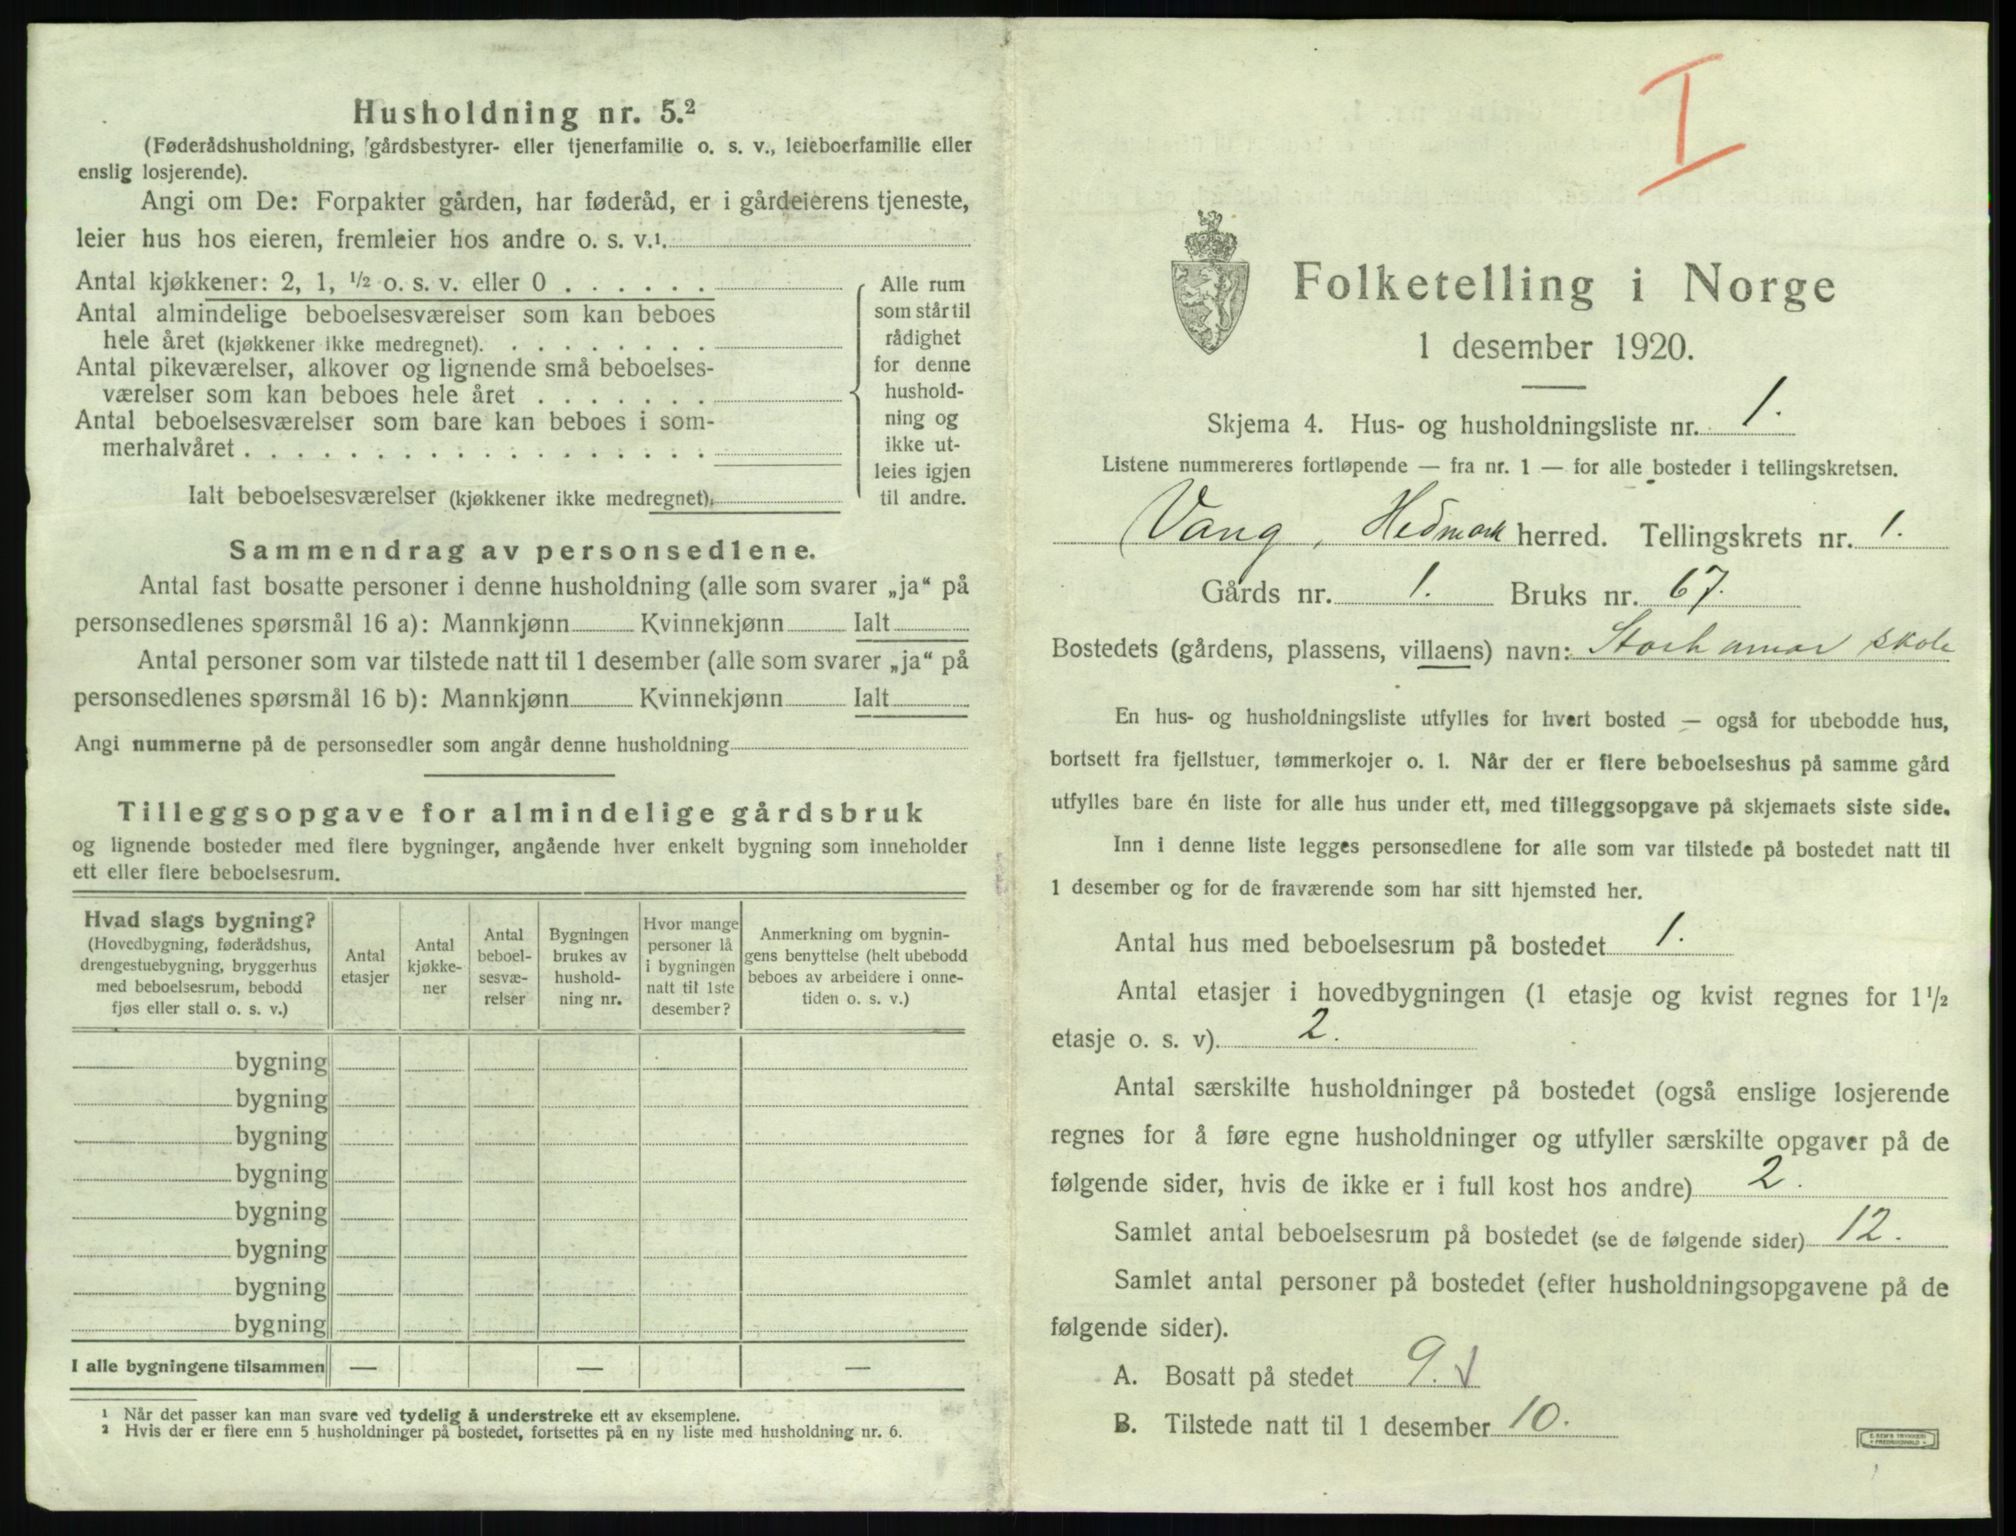 Husholdning nr. 5.²
(Føderådshusholdning, gårdsbestyrer- eller tjenerfamilie o. s. v., leieboerfamilie eller
enslig losjerende).
Angi om De: Forpakter gården, har føderåd, er i gårdeierens tjeneste,
leier hus hos eieren, fremleier hos andre o. s. v.¹.
Antal kjøkkener: 2, 1, ½ o. s. v. eller 0 . . . . . .
Antal almindelige beboelsesværelser som kan beboes
hele året (kjøkkener ikke medregnet). . . . . . . . .
Antal pikeværelser, alkover og lignende små beboelses-
værelser som kan beboes hele året . . . . . . .
Antal beboelsesværelser som bare kan beboes i som-
merhalvåret . . . . . . . . . . . . . . . . . .
Ialt beboelsesværelser (kjøkkener ikke medregnet).
Alle rum
som står til
rådighet
for denne
hushold-
ning og
ikke ut-
leies igjen
til andre.
Sammendrag av personsedlene.
Antal fast bosatte personer i denne husholdning (alle som svarer „ja“ på
personsedlenes spørsmål 16 a): Mannkjønn Kvinnekjønn Ialt
Antal personer som var tilstede natt til 1 desember (alle som svarer „ja“ på
personsedlenes spørsmål 16 b): Mannkjønn Kvinnekjønn Ialt
Angi nummerne på de personsedler som angår denne husholdning
Tilleggsopgave for almindelige gårdsbruk
og lignende bosteder med flere bygninger, angående hver enkelt bygning som inneholder
ett eller flere beboelsesrum.
Hvad slags bygning?
(Hovedbygning, føderådshus,
drengestuebygning, bryggerhus
med beboelsesrum, bebodd
fjøs eller stall o. s. v.)
Antal
etasjer
Antal
kjøkke-
ner
Antal
beboel-
sesvæ-
relser
Bygningen
brukes av
hushold-
ning nr.
Hvor mange
personer lå
i bygningen
natt til 1ste
desember?
Anmerkning om bygnin-
gens benyttelse (helt ubebodd
beboes av arbeidere i onne-
tiden o. s. v.)
bygning
bygning
bygning
bygning
bygning
bygning
bygning
bygning
I alle bygningene tilsammen — — —
¹ Når det passer kan man svare ved tydelig å understreke ett av eksemplene.
² Hvis der er flere enn 5 husholdninger på bostedet, fortsettes på en ny liste med husholdning nr. 6.
I
Folketelling i Norge
1 desember 1920.
Skjema 4. Hus- og husholdningsliste nr. 1.
Listene nummereres fortløpende — fra nr. 1 — for alle bosteder i tellingskretsen.
Vang, Hedmark herred. Tellingskrets nr. 1.
Gårds nr. 1. Bruks nr. 67.
Bostedets (gårdens, plassens, villaens) navn: Storhamar skole
En hus- og husholdningsliste utfylles for hvert bosted — også for ubebodde hus,
bortsett fra fjellstuer, tømmerkojer o. l. Når der er flere beboelseshus på samme gård
utfylles bare én liste for alle hus under ett, med tilleggsopgave på skjemaets siste side.
Inn i denne liste legges personsedlene for alle som var tilstede på bostedet natt til
1 desember og for de fraværende som har sitt hjemsted her.
Antal hus med beboelsesrum på bostedet 1.
Antal etasjer i hovedbygningen (1 etasje og kvist regnes for 1½
etasje o. s. v). 2.
Antal særskilte husholdninger på bostedet (også enslige losjerende
regnes for å føre egne husholdninger og utfyller særskilte opgaver på de
følgende sider, hvis de ikke er i full kost hos andre) 2.
Samlet antal beboelsesrum på bostedet (se de følgende sider) 12.
Samlet antal personer på bostedet (efter husholdningsopgavene på de
følgende sider).
A. Bosatt på stedet 9. √
B. Tilstede natt til 1 desember 10.